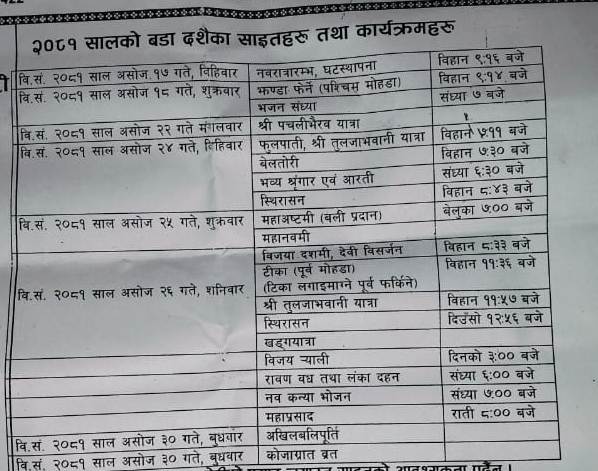 २०८१ सालको बडा दशैंका साइतहरू तथा कार्यक्रमहरू
वि.सं. २०८१ साल असोज १७ गते, विहिवार नवरात्रारम्भ, घटस्थापना विहान ९:१६ बजे
वि.सं. २०८१ साल असोज १८ गते, शुक्रवार झण्डा फेर्ने (पश्चिम मोहडा) विहान ९:१४ बजे
भजन संध्या संध्या ७ बजे
वि.सं. २०८१ साल असोज २२ गते मंगलवार श्री पचलीभैरव यात्रा
वि.सं. २०८१ साल असोज २४ गते, विहिवार फुलपाती, श्री तुलजाभवानी यात्रा विहान ७:११ बजे
बेलतोरी विहान ७:३० बजे
भव्य श्रृंगार एवं आरती संध्या ६:३० बजे
स्थिरासन विहान ८:४३ बजे
वि.सं. २०८१ साल असोज २५ गते, शुक्रवार महाअष्टमी (बली प्रदान) बेलुका ७:०० बजे
महानवमी
विजया दशमी, देवी विसर्जन विहान ८:३३ बजे
टीका (पूर्व मोहडा) विहान ११:३६ बजे
वि.सं. २०८१ साल असोज २६ गते, शनिवार (टिका लगाइमाग्ने पूर्व फर्किने)
श्री तुलजाभवानी यात्रा विहान ११:५७ बजे
स्थिरासन दिउँसो १२:५६ बजे
खड्गयात्रा
विजय र्‍याली दिनको ३:०० बजे
रावण वध तथा लंका दहन संध्या ६:०० बजे
नव कन्या भोजन संध्या ७:०० बजे
महाप्रसाद राती ८:०० बजे
वि.सं. २०८१ साल असोज ३० गते, बुधवार अखिलबलिपूर्ति
वि.सं. २०८१ साल असोज ३० गते, बुधवार कोजाग्रात व्रत